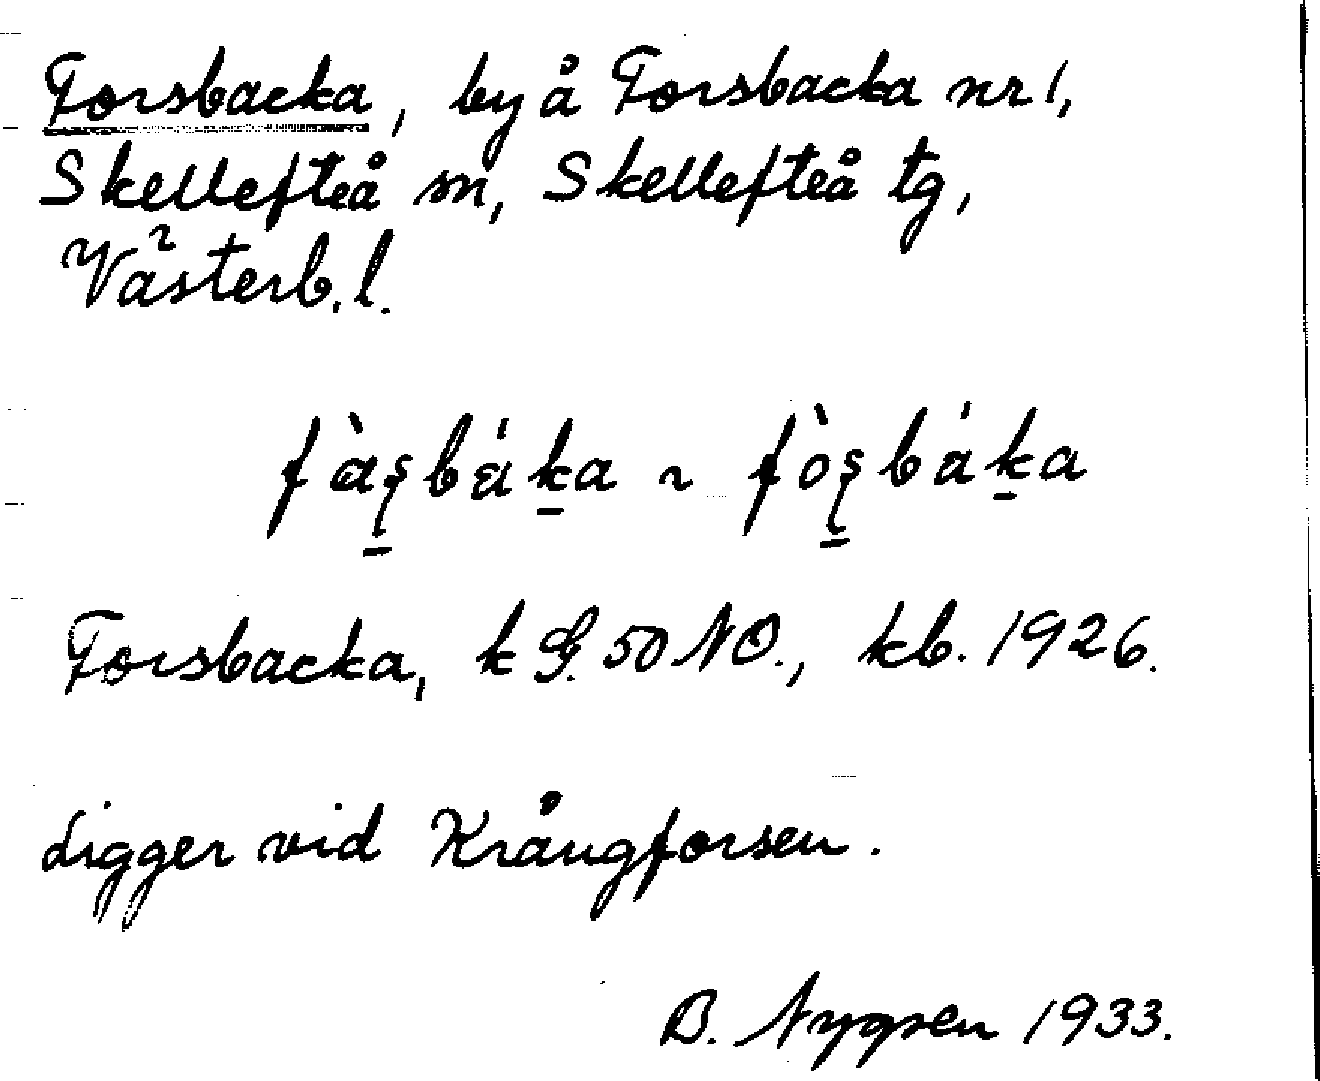 Forsbacka, by å Forsbacka nr 1,
Skellefteå sn, Skellefteå tg,
Västerb. l.
fàʂbák̠a ~ fòʂbák̠a
Forsbacka, k G. 50 NO., kb. 1926.
Ligger vid Krångforsen.
B. 1933.